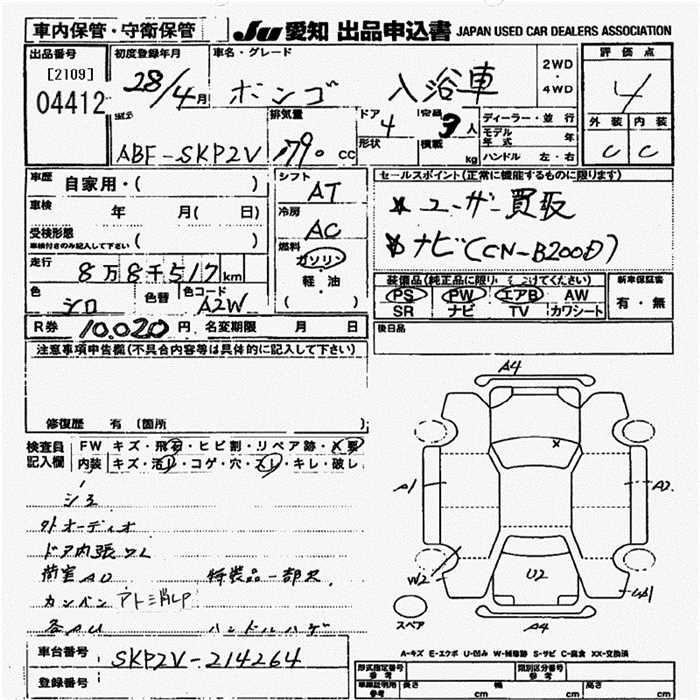 車内保管・守衛保管 JU 愛知 出品申込書 JAPAN USED CAR DEALERS ASSOCIATION
出品番号 初度登録年月 車名・グレード 評価点
[2109] 28/4月 ボンゴ 入浴車 2WD・4WD 4
04412
型式 排気量 ドア 定員 ディーラー・並行 外装 内装
ABF-SKP2V 1790 cc 4 3人 モデル年式 年 C C
形状 積載 kg ハンドル 左・右
車歴 自家用・( ) シフト AT セールスポイント(正常に機能するものに限ります)
車検 年 月( 日) 冷房 AC ★ユーザー買取
受検形態 ( )
車検付きのみ記入して下さい
燃料 ガソリン 軽・油 ( ) ★ナビ(CN-B200D)
走行 8万8千517km
色 シロ 色替 色コード A2W
装備品(純正品に限り 新車保証書
PS PW エアB AW 有・無
SR ナビ TV カワシート
R券 10.020円 名変期限 月 日 後日品
注意事項申告欄(不具合内容等は具体的に記入して下さい)
修復歴 有 (箇所 )
検査員記入欄 FW キズ・飛石・ヒビ割・リペア跡・X要
内装 キズ・汚レ・コゲ・穴・スレ・キレ・破レ
外オーディオ
ドア内張スレ
荷室AU 特装品一部欠
各AU ハンドルハゲ
A4
A1 A2
W2 U2 W1
スペア A4
車台番号 SKP2V-214264
登録番号
A-キズ E-エクボ U-凹み W-補修跡 S-サビ C-腐食 XX-交換済
形式指定番号 参考 類別区分番号 参考
車庫証明用 参考 長さ cm 幅 cm 高さ cm